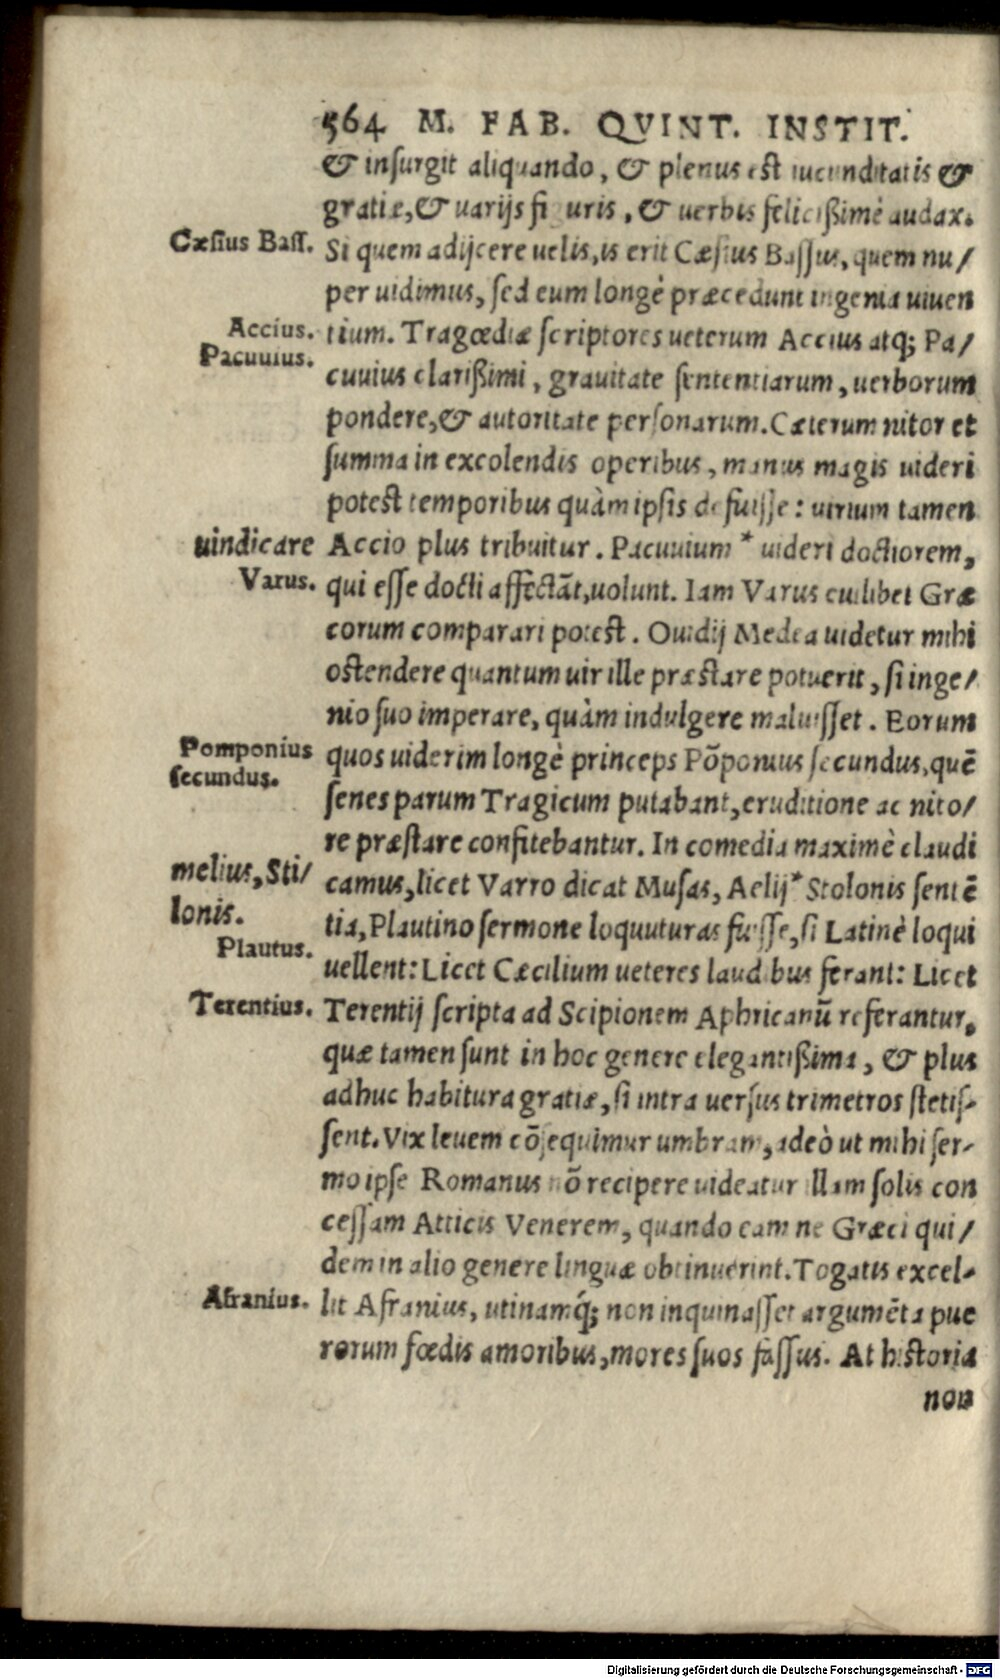 564 M. FAB. QVINT. INSTIT.
& insurgit aliquando, & plenus est iucunditatis &
gratiæ, & uarijs figuris, & uerbis felicißimè audax.
Cæsius Bass. Si quem adijcere uelis, is erit Cæsius Bassus, quem nu/
per uidimus, sed eum longè præcedunt ingenia uiuen
Accius. tium. Tragœdiæ scriptores ueterum Accius atq; Pa/
Pacuuius. cuuius clarißimi, grauitate sententiarum, uerborum
pondere, & autoritate personarum. Cæterum nitor et
summa in excolendis operibus, manus magis uideri
potest temporibus quàm ipsis defuisse: uirium tamen
uindicare Accio plus tribuitur. Pacuuium * uideri doctiorem,
Varus. qui esse docti affectãt, uolunt. Iam Varus cuilibet Græ
corum comparari potest. Ouidij Medea uidetur mihi
ostendere quantum uir ille præstare potuerit, si inge/
nio suo imperare, quàm indulgere maluisset. Eorum
Pomponius quos uiderim longè princeps Põponius secundus, quẽ
secundus. senes parum Tragicum putabant, eruditione ac nito/
re præstare confitebantur. In comedia maximè claudi
melius, Sti/ camus, licet Varro dicat Musas, Aelij * Stolonis sentẽ
lonis. tia, Plautino sermone loquuturas fuisse, si Latinè loqui
Plautus. uellent: Licet Cæcilium ueteres laudibus ferant: Licet
Terentius. Terentij scripta ad Scipionem Aphricanũ referantur,
quæ tamen sunt in hoc genere elegantißima, & plus
adhuc habitura gratiæ, si intra uersus trimetros stetis-
sent. Vix leuem cõsequimur umbram, adeò ut mihi ser-
mo ipse Romanus nõ recipere uideatur illam solis con
cessam Atticis Venerem, quando eam ne Græci qui/
dem in alio genere linguæ obtinuerint. Togatis excel-
Afranius. lit Afranius, utinamq́; non inquinasset argumẽta pue
rorum fœdis amoribus, mores suos fassus. At historia
non
Digitalisierung gefördert durch die Deutsche Forschungsgemeinschaft - DFG